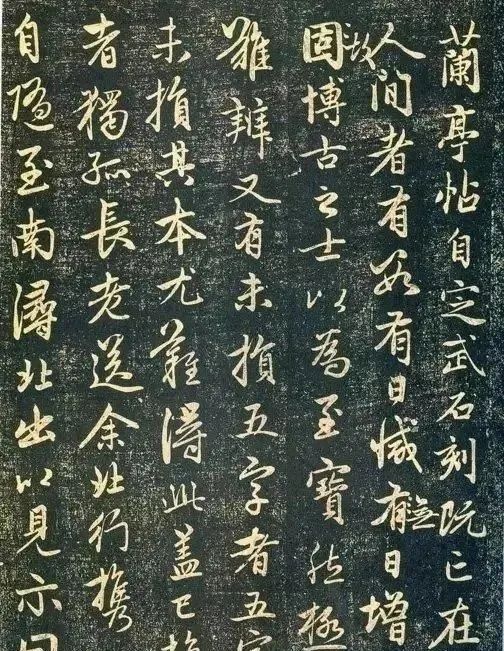 蘭亭帖自定武石刻既亡在
人間者有數有日減有無日增
固故博古之士以為至寶然極
難辨又有未損五字者五字
未損其本尤難得此蓋已損
者獨孤長老送余北行攜
自隨至南潯北出以見示